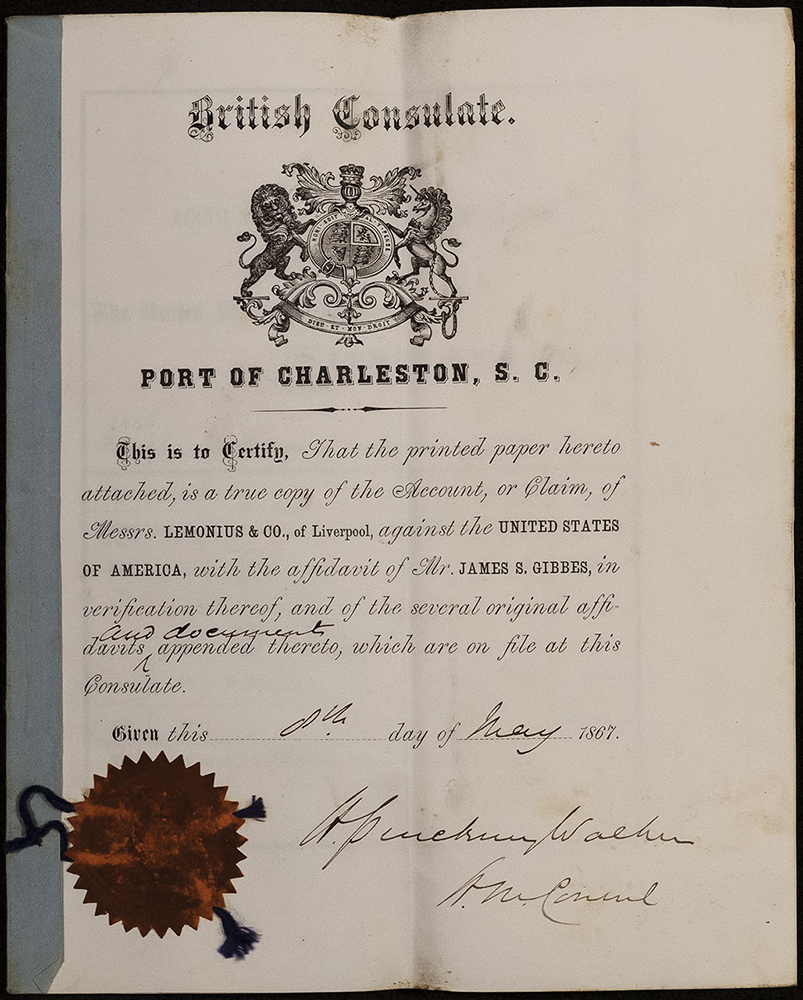 British Consulate.
HONI SOIT QUI MAL Y PENSE
DIEU·ET·MON·DROIT
PORT OF CHARLESTON, S. C.
This is to Certify, That the printed paper hereto
attached, is a true copy of the Account, or Claim, of
Messrs. LEMONIUS & CO., of Liverpool, against the UNITED STATES
OF AMERICA, with the affidavit of Mr. JAMES S. GIBBES, in
verification thereof, and of the several original affi-
and documents
davits ‸ appended thereto, which are on file at this
Consulate.
Given this 8th. day of May 1867.
H. Pinckney Walker
H. M. Consul